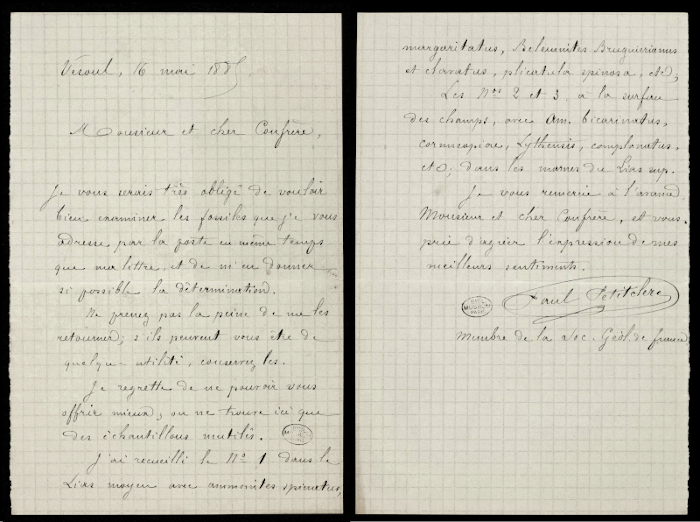 Vesoul, 16 mai 188
Monsieur et cher Confrère,
Je vous serais très obligé de vouloir
bien examiner les fossiles que je vous
adresse par la poste en même temps
que ma lettre, et de m'en donner
si possible la détermination.
Ne prenez pas la peine de me les
retourner; s'ils peuvent vous être de
quelque utilité, conservez les.
Je regrette de ne pouvoir vous
offrir mieux; on ne trouve ici que
des échantillons mutilés.
J'ai recueilli le No 1 dans le
Lias moyen avec ammonites spinatus,
margaritatus, Belemnites Bruguierianus
et clavatus, plicatula spinosa, etc,
Les Nos 2 et 3 à la surface
des champs, avec am. bicarinatus,
cornucopiae, Lythensis, complanatus,
etc; dans les marnes du Lias sup.
Je vous remercie à l'avance,
Monsieur et cher Confrère, et vous
prie d'agréer l'expression de mes
meilleurs sentiments.
Paul Petitclerc
Membre de la soc. Géol. de france